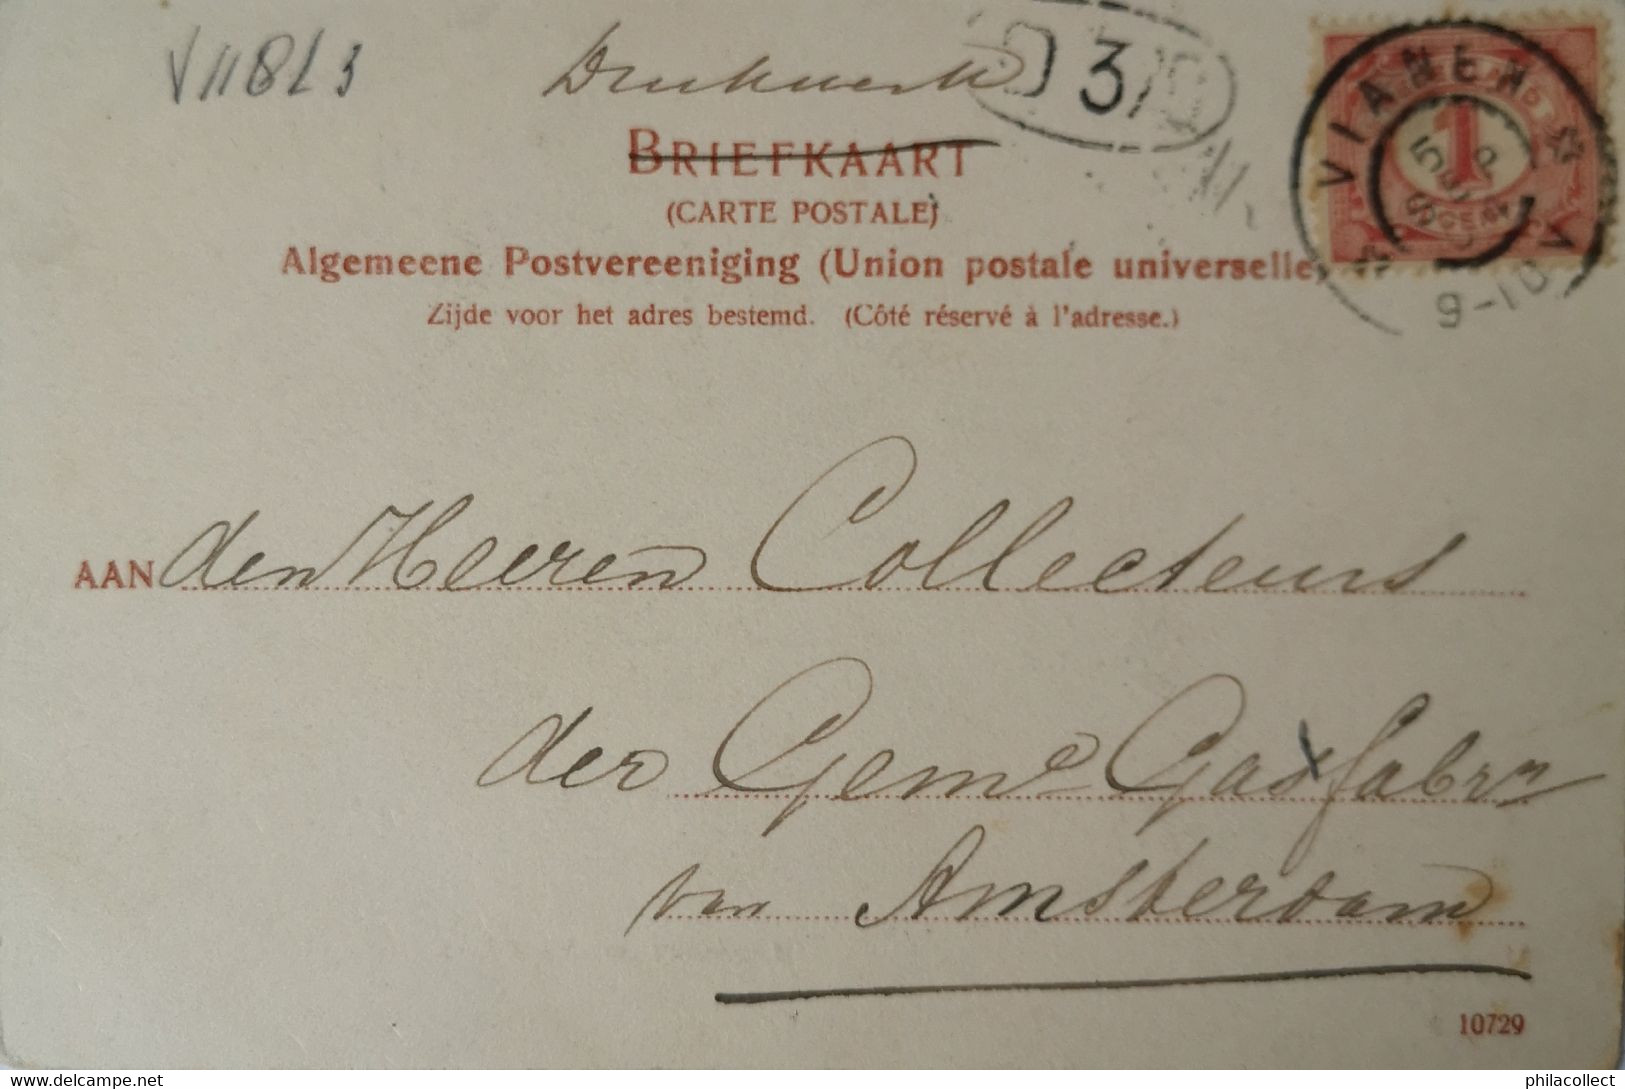 V11813
Drukwerk
D 3
VIANEN
1
9-10 V
BRIEFKAART
(CARTE POSTALE)
Algemeene Postvereeniging (Union postale universelle)
Zijde voor het adres bestemd. (Côté réservé à l'adresse.)
AAN den Heeren Collecteurs
der Geme Gasfabrn
van Amsterdam
10729
philacollect